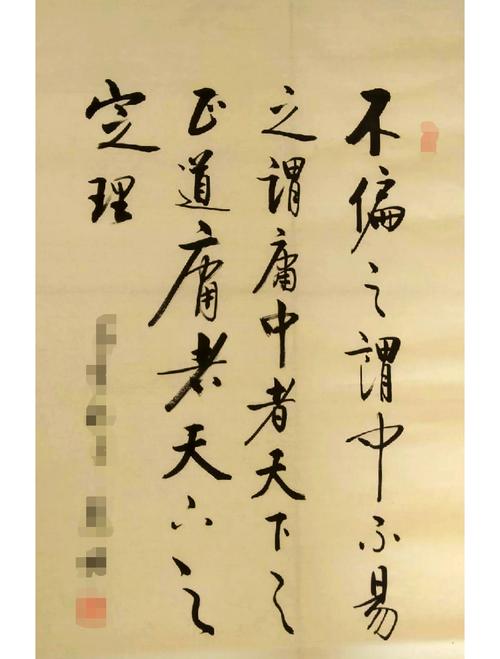 不偏之謂中不易
之謂庸中者天下之
正道庸者天下之
定理